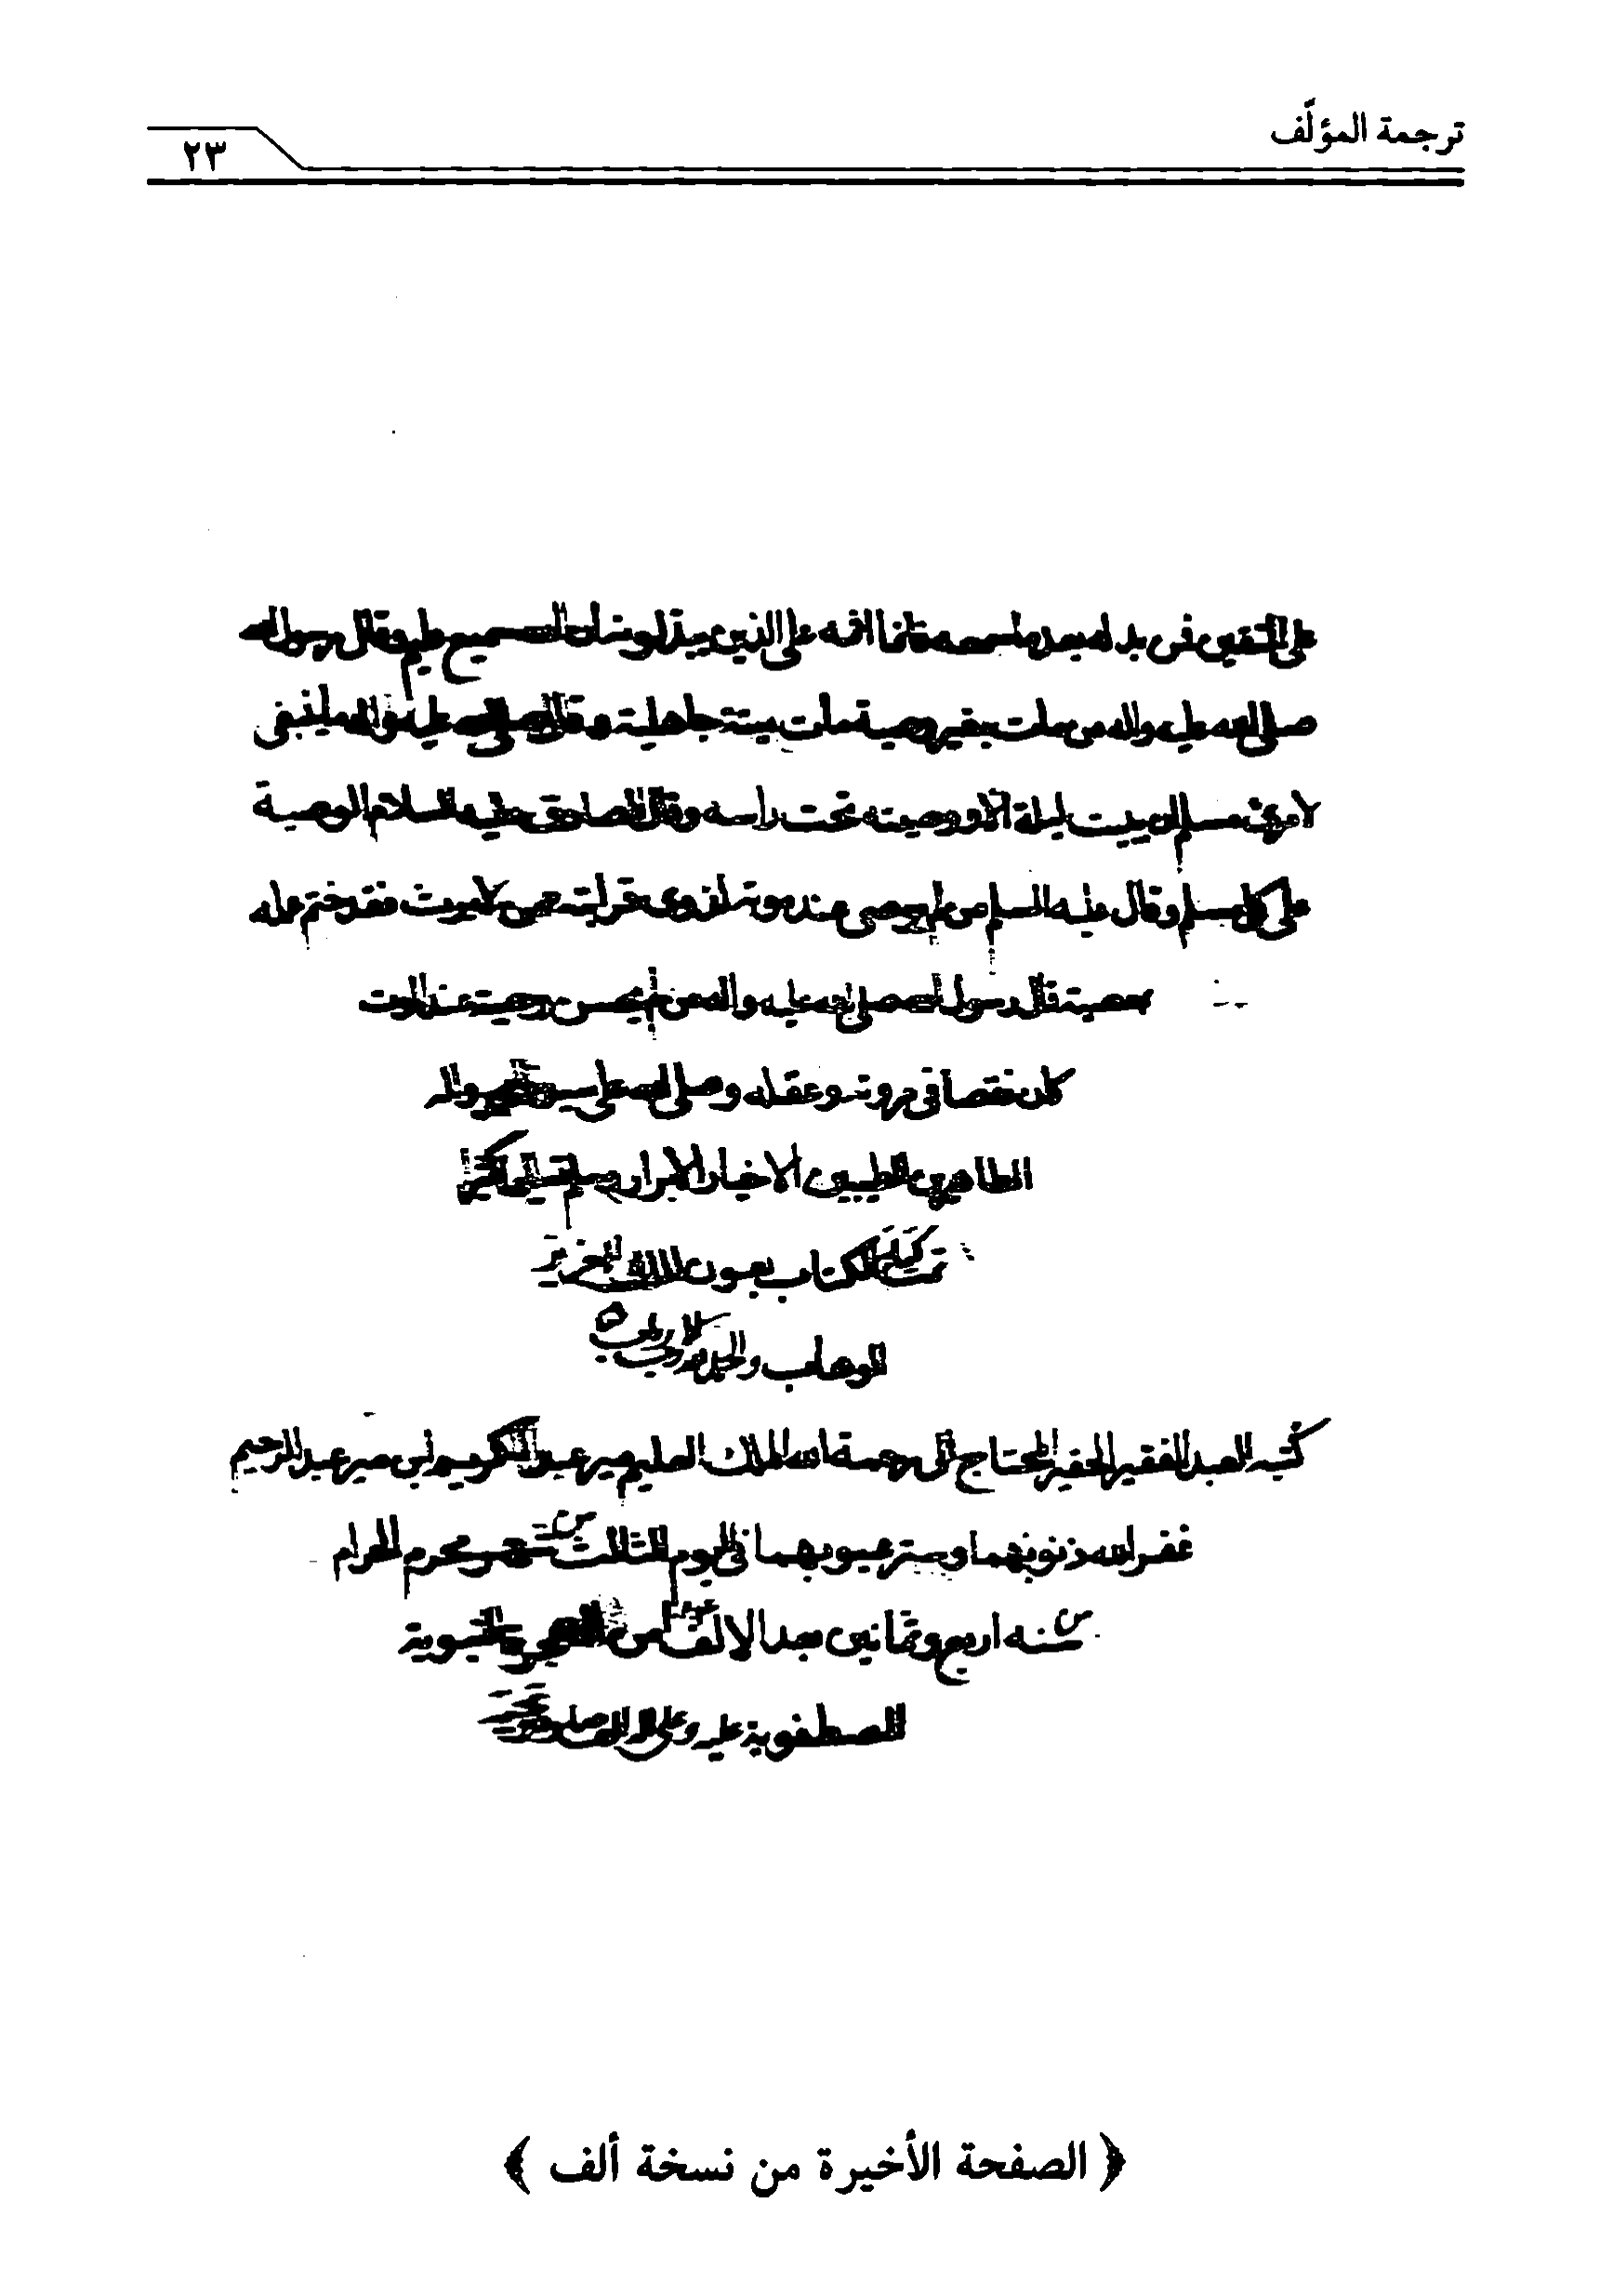 ترجمة المؤلّف
٢٣
على المتقين فمن بدله بعد ما سمعه فانما اثمه على الذين يبدلونه ان الله سميع عليم وقال رسول الله
صلى الله عليه واله من مات بغير وصية مات ميتة جاهلية وقال صلى الله عليه واله ما ينبغى
لامرئ مسلم ان يبيت ليلة الا ووصيته تحت راسه وقال الصادق عليه السلام الوصية
على كل مسلم وقال عليه السلم من لم يوص عند موته لذوى قرابته ممن لا يرث فقد ختم عمله
بمعصية قال رسول الله صلى الله عليه واله من لم يحسن وصيته عند الموت
كان نقصا فى مروته وعقله وصلى الله على سيدنا محمد واله
الطاهرين الطيبين الاخيار الابرار وسلم تسليما كثيرا
تمت الكتاب بعون الملك العزيز
الوهاب والحمد لله رب
كتبه العبد الفقير الحقير المحتاج الى رحمة الله الملك العليم مير عبد الكريم ابن مير عبد الرحيم
غفر الله ذنوبهما وستر عيوبهما فى اليوم الثالث من شهر محرم الحرام
من سنه اربع وثمانين بعد الالف من الهجرة النبوية
المصطفوية عليه وعلى اله
﴿ الصفحة الأخيرة من نسخة ألف ﴾